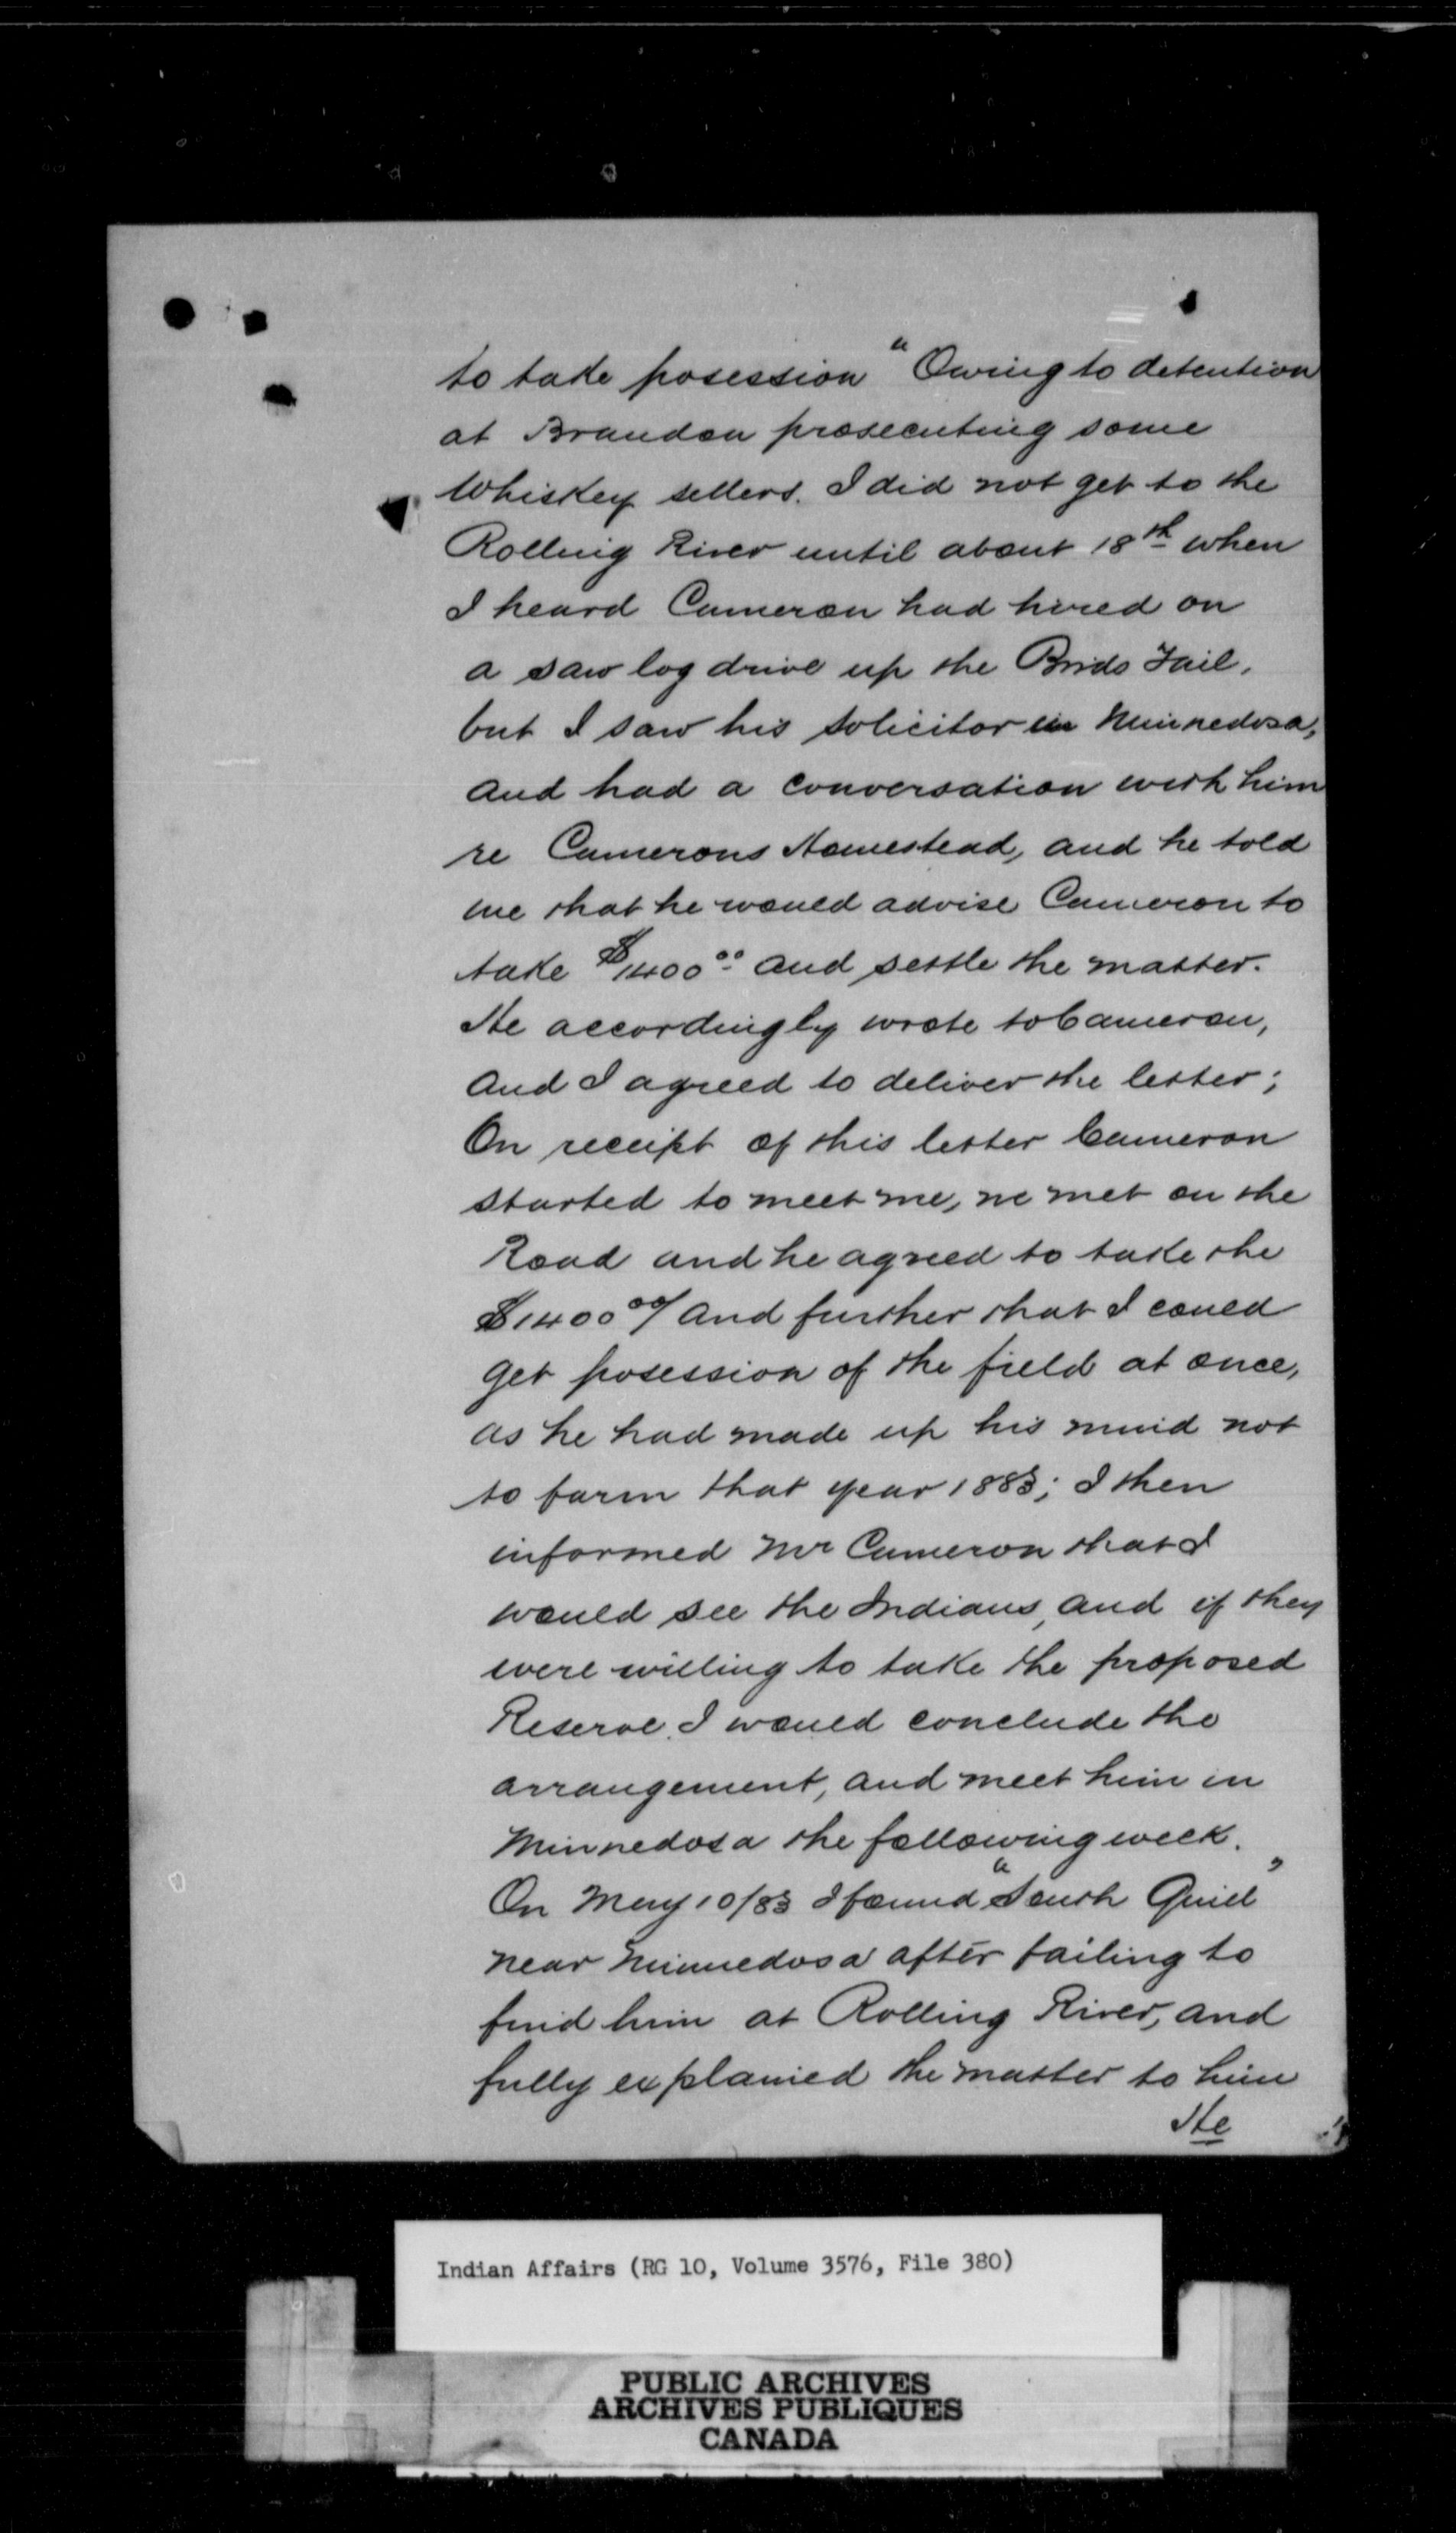 to take posession "Owing to detention
at Brandon prosecuting some
Whiskey sellers. I did not get to the
Rolling River until about 18th when
I heard Cameron had hired on
a saw log drive up the Birds Tail,
but I saw his solicitor in Minnedosa,
and had a conversation with him
re Camerons Homestead, and he told
me that he would advise Cameron to
take $1400.00 and settle the matter.
He accordingly wrote to Cameron,
and I agreed to deliver the letter;
On receipt of this letter Cameron
started to meet me, we met on the
Road and he agreed to take the
$1400 00/ and further that I could
get posession of the field at once,
as he had made up his mind not
to farm that year 1883; I then
informed Mr Cameron that I
would see the Indians, and if they
were willing to take the proposed
Reserve. I would conclude the
arrangement, and meet him in
Minnedosa the following week.
On May 10/83 I found "South Quill"
near Minnedosa after failing to
find him at Rolling River, and
fully explained the matter to him
He
Indian Affairs (RG 10, Volume 3576, File 380)
PUBLIC ARCHIVES
ARCHIVES PUBLIQUES
CANADA